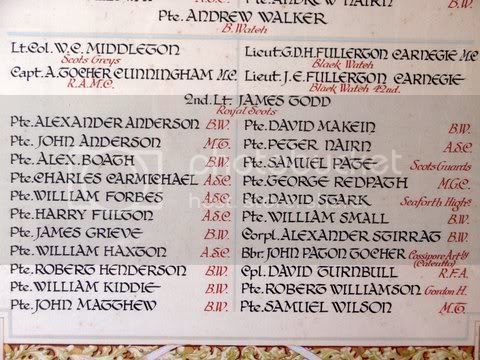 Pte. ANDREW NAIRN B.W.
Pte. ANDREW WALKER
B. Watch
Lt. Col. W.C. MIDDLETON
Scots Greys
Lieut. G.D.H. FULLERTON CARNEGIE M.C.
Black Watch
Capt. A. TOCHER CUNNINGHAM M.C.
R.A.M.C.
Lieut. J.E. FULLERTON CARNEGIE
Black Watch 42nd.
2nd. Lt. JAMES TODD
Royal Scots
Pte. ALEXANDER ANDERSON B.W.
Pte. JOHN ANDERSON M.T.
Pte. ALEX. BOATH B.W.
Pte. CHARLES CARMICHAEL A.S.C.
Pte. WILLIAM FORBES A.S.C.
Pte. HARRY FULTON A.S.C.
Pte. JAMES GRIEVE B.W.
Pte. WILLIAM HAXTON A.S.C.
Pte. ROBERT HENDERSON B.W.
Pte. WILLIAM KIDDIE B.W.
Pte. JOHN MATTHEW B.W.
Pte. DAVID MAKEIN B.W.
Pte. PETER NAIRN A.S.C.
Pte. SAMUEL PATE Scots Guards
Pte. GEORGE REDPATH M.G.C.
Pte. DAVID STARK Seaforth Highrs
Pte. WILLIAM SMALL B.W.
Corpl. ALEXANDER STIRRAT B.W.
Bbr. JOHN PATON TOCHER Cossipore Arty
(Calcutta)
Cpl. DAVID TURNBULL R.F.A.
Pte. ROBERT WILLIAMSON Gordon H.
Pte. SAMUEL WILSON M.T.